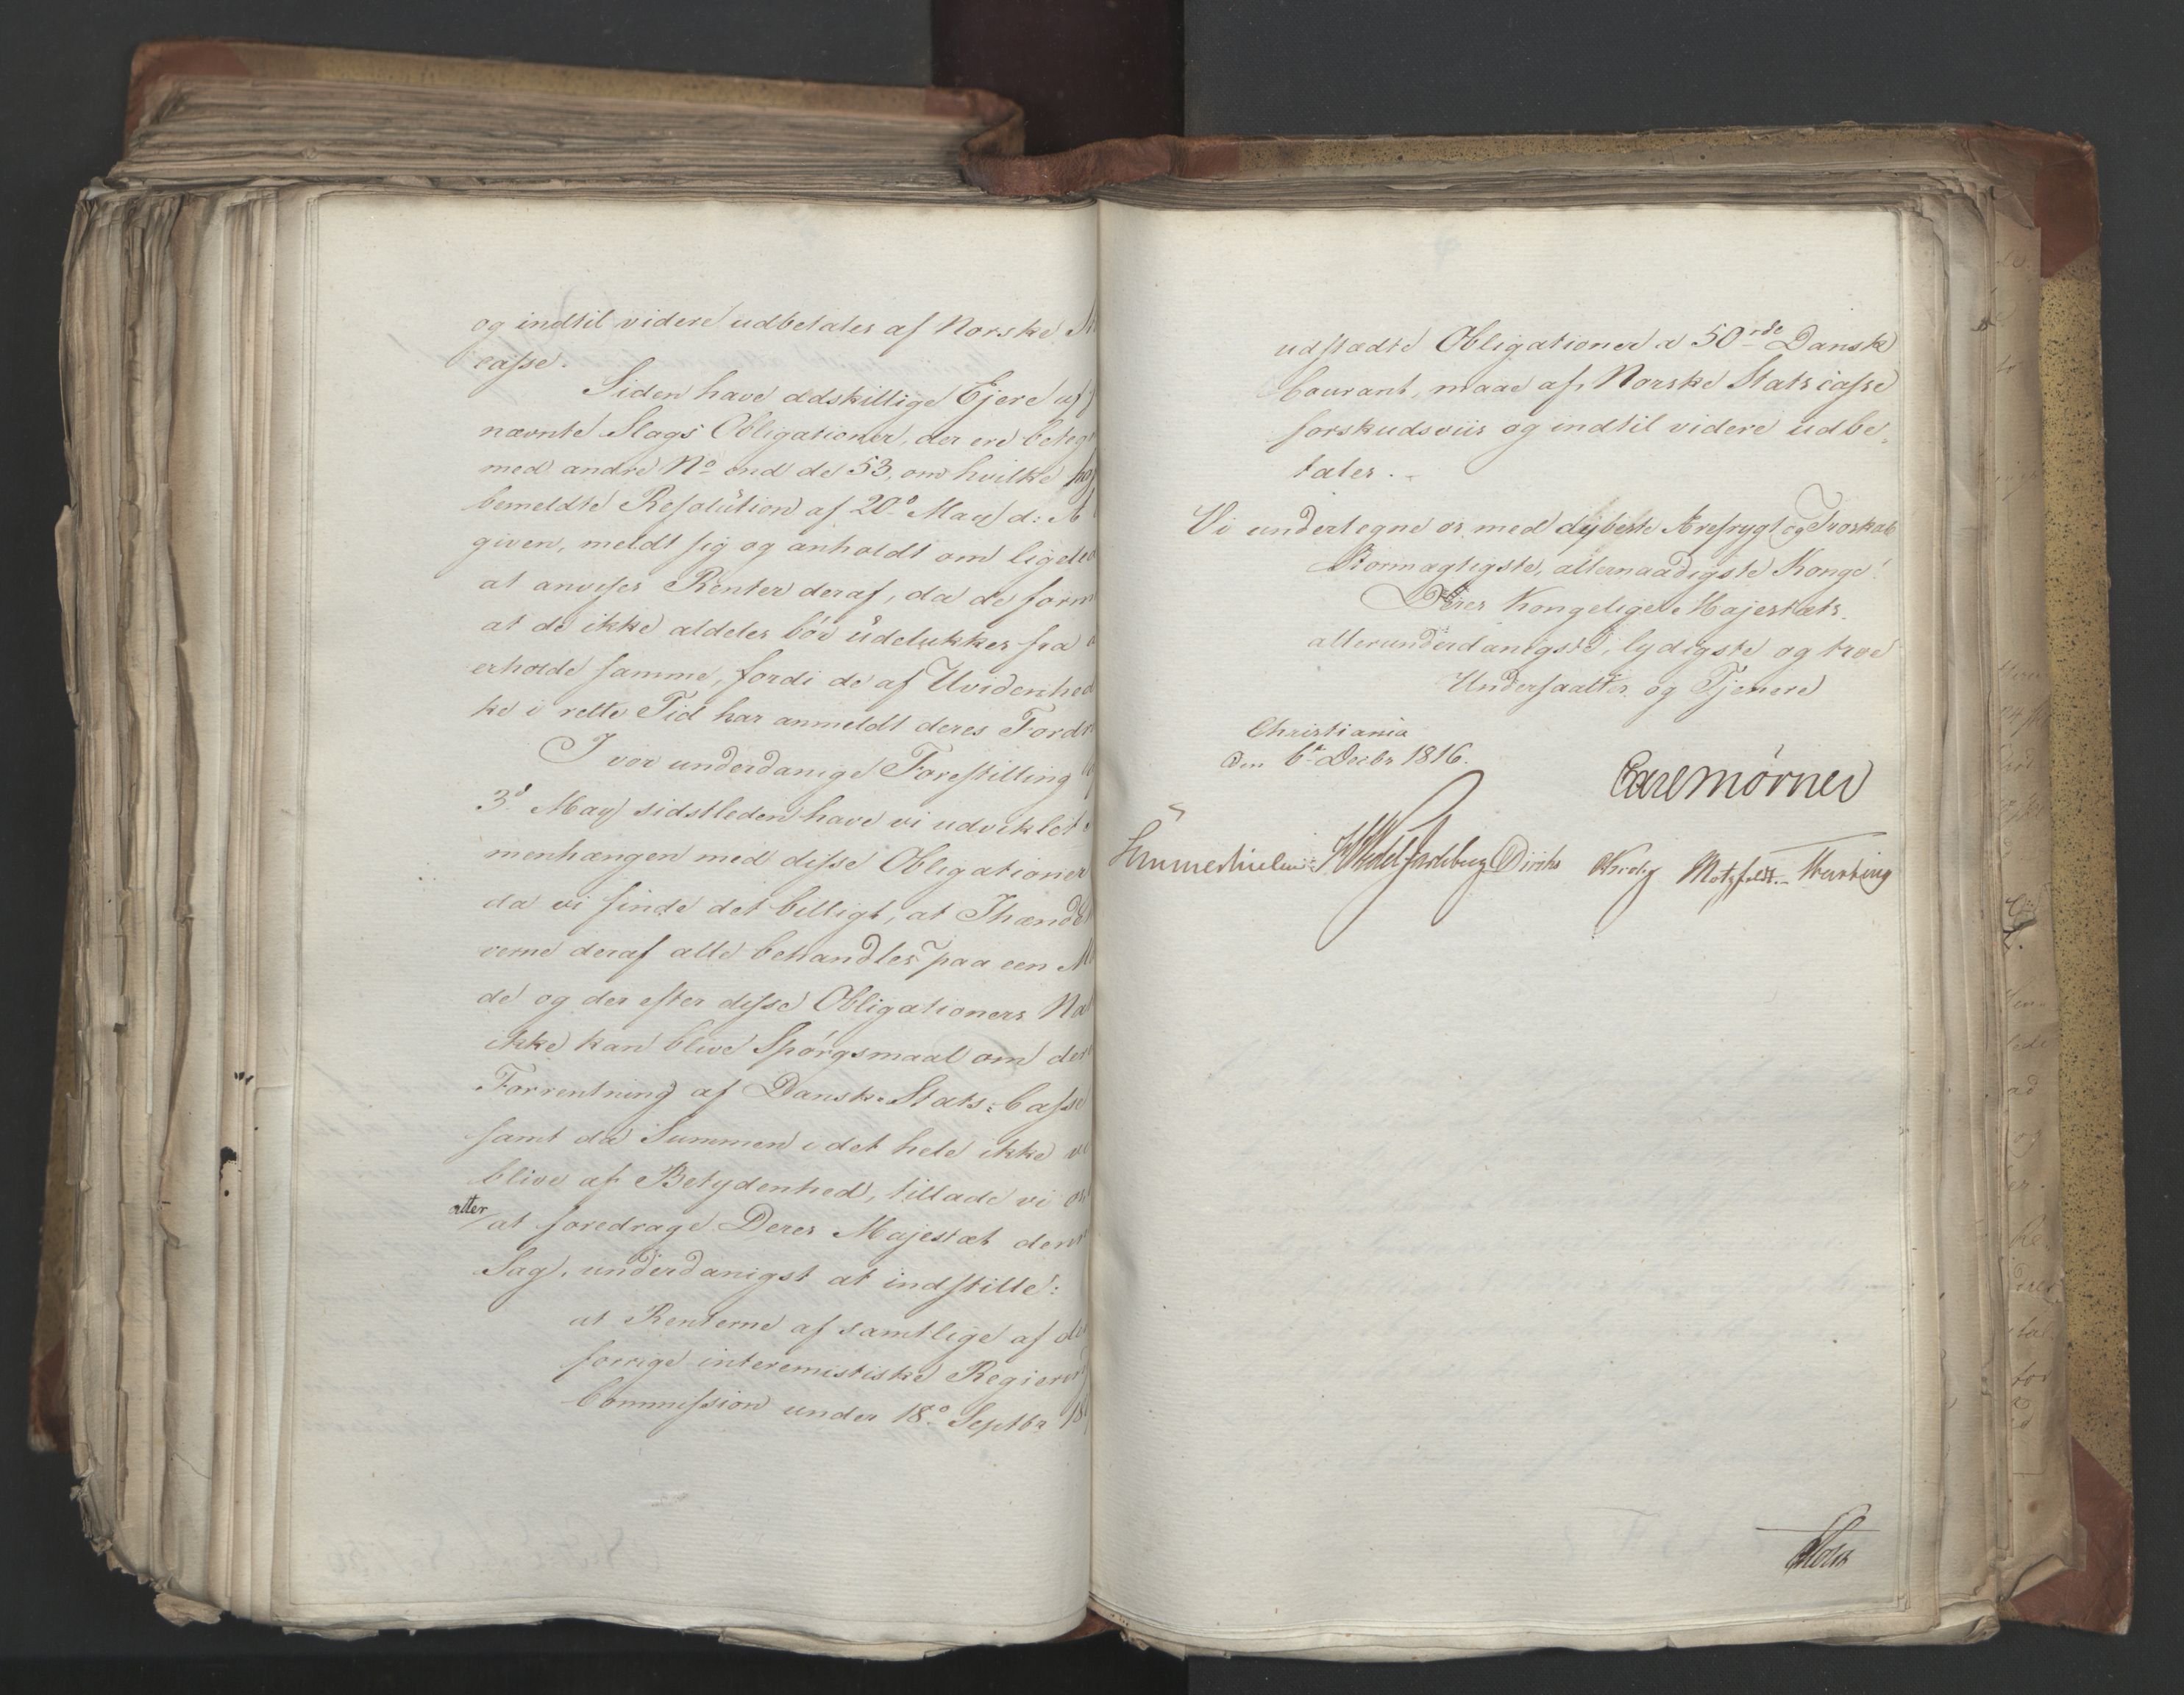 og indtil videre udbetales af Norske St
casse.
Siden have adskillige Ejere af
nævnte Slags Obligationer, der ere beteg
med andre No end de 53, om hvilke
bemeldte Resolution af 20de May d: A
given, meldt sig og anholdt om ligele
at anvises Renter deraf, da de form
at de ikke aldeles bör udelukkes fra
erholde samme, fordi de af Uvidenhed
ke i rette Tid har anmeldt deres Fordr
I vor underdanige Forestilling
3d May sidstleden have vi udviklet
menhængen med disse Obligationer
da vi finde det billigt, at Ihænde
verne deraf alle behandles paa een M
de og der efter disse Obligationers Na
ikke kan blive Spörgsmaal om der
Forrentning af Dansk Stats-Casse
samt da Summen i det hele ikke
blive af Betydenhed, tillade vi os
atter
at foredrage Deres Majestæt denn
Sag, underdanigst at indstille:
at Renterne af samtlige af de
forrige interemistiske Regierin
Commission under 18de Septbr 18
udstædte Obligationer a 50 rde Dansk
Courant, maae af Norske Stats casse
forskudsviis og indtil videre udbe-
tales.
Vi undertegne os med dybeste Ærefrygt og Troskab
Stormægtigste, allernaadigste Konge!
Deres Kongelige Majestæts
allerunderdanigste, lydigste og troe
Undersaatter og Tjenere
Christiania
den 6te Decbr 1816.
Carl Mörner
Sommerhielm Wedel Jarlsberg Diriks Krog Motzfeldt